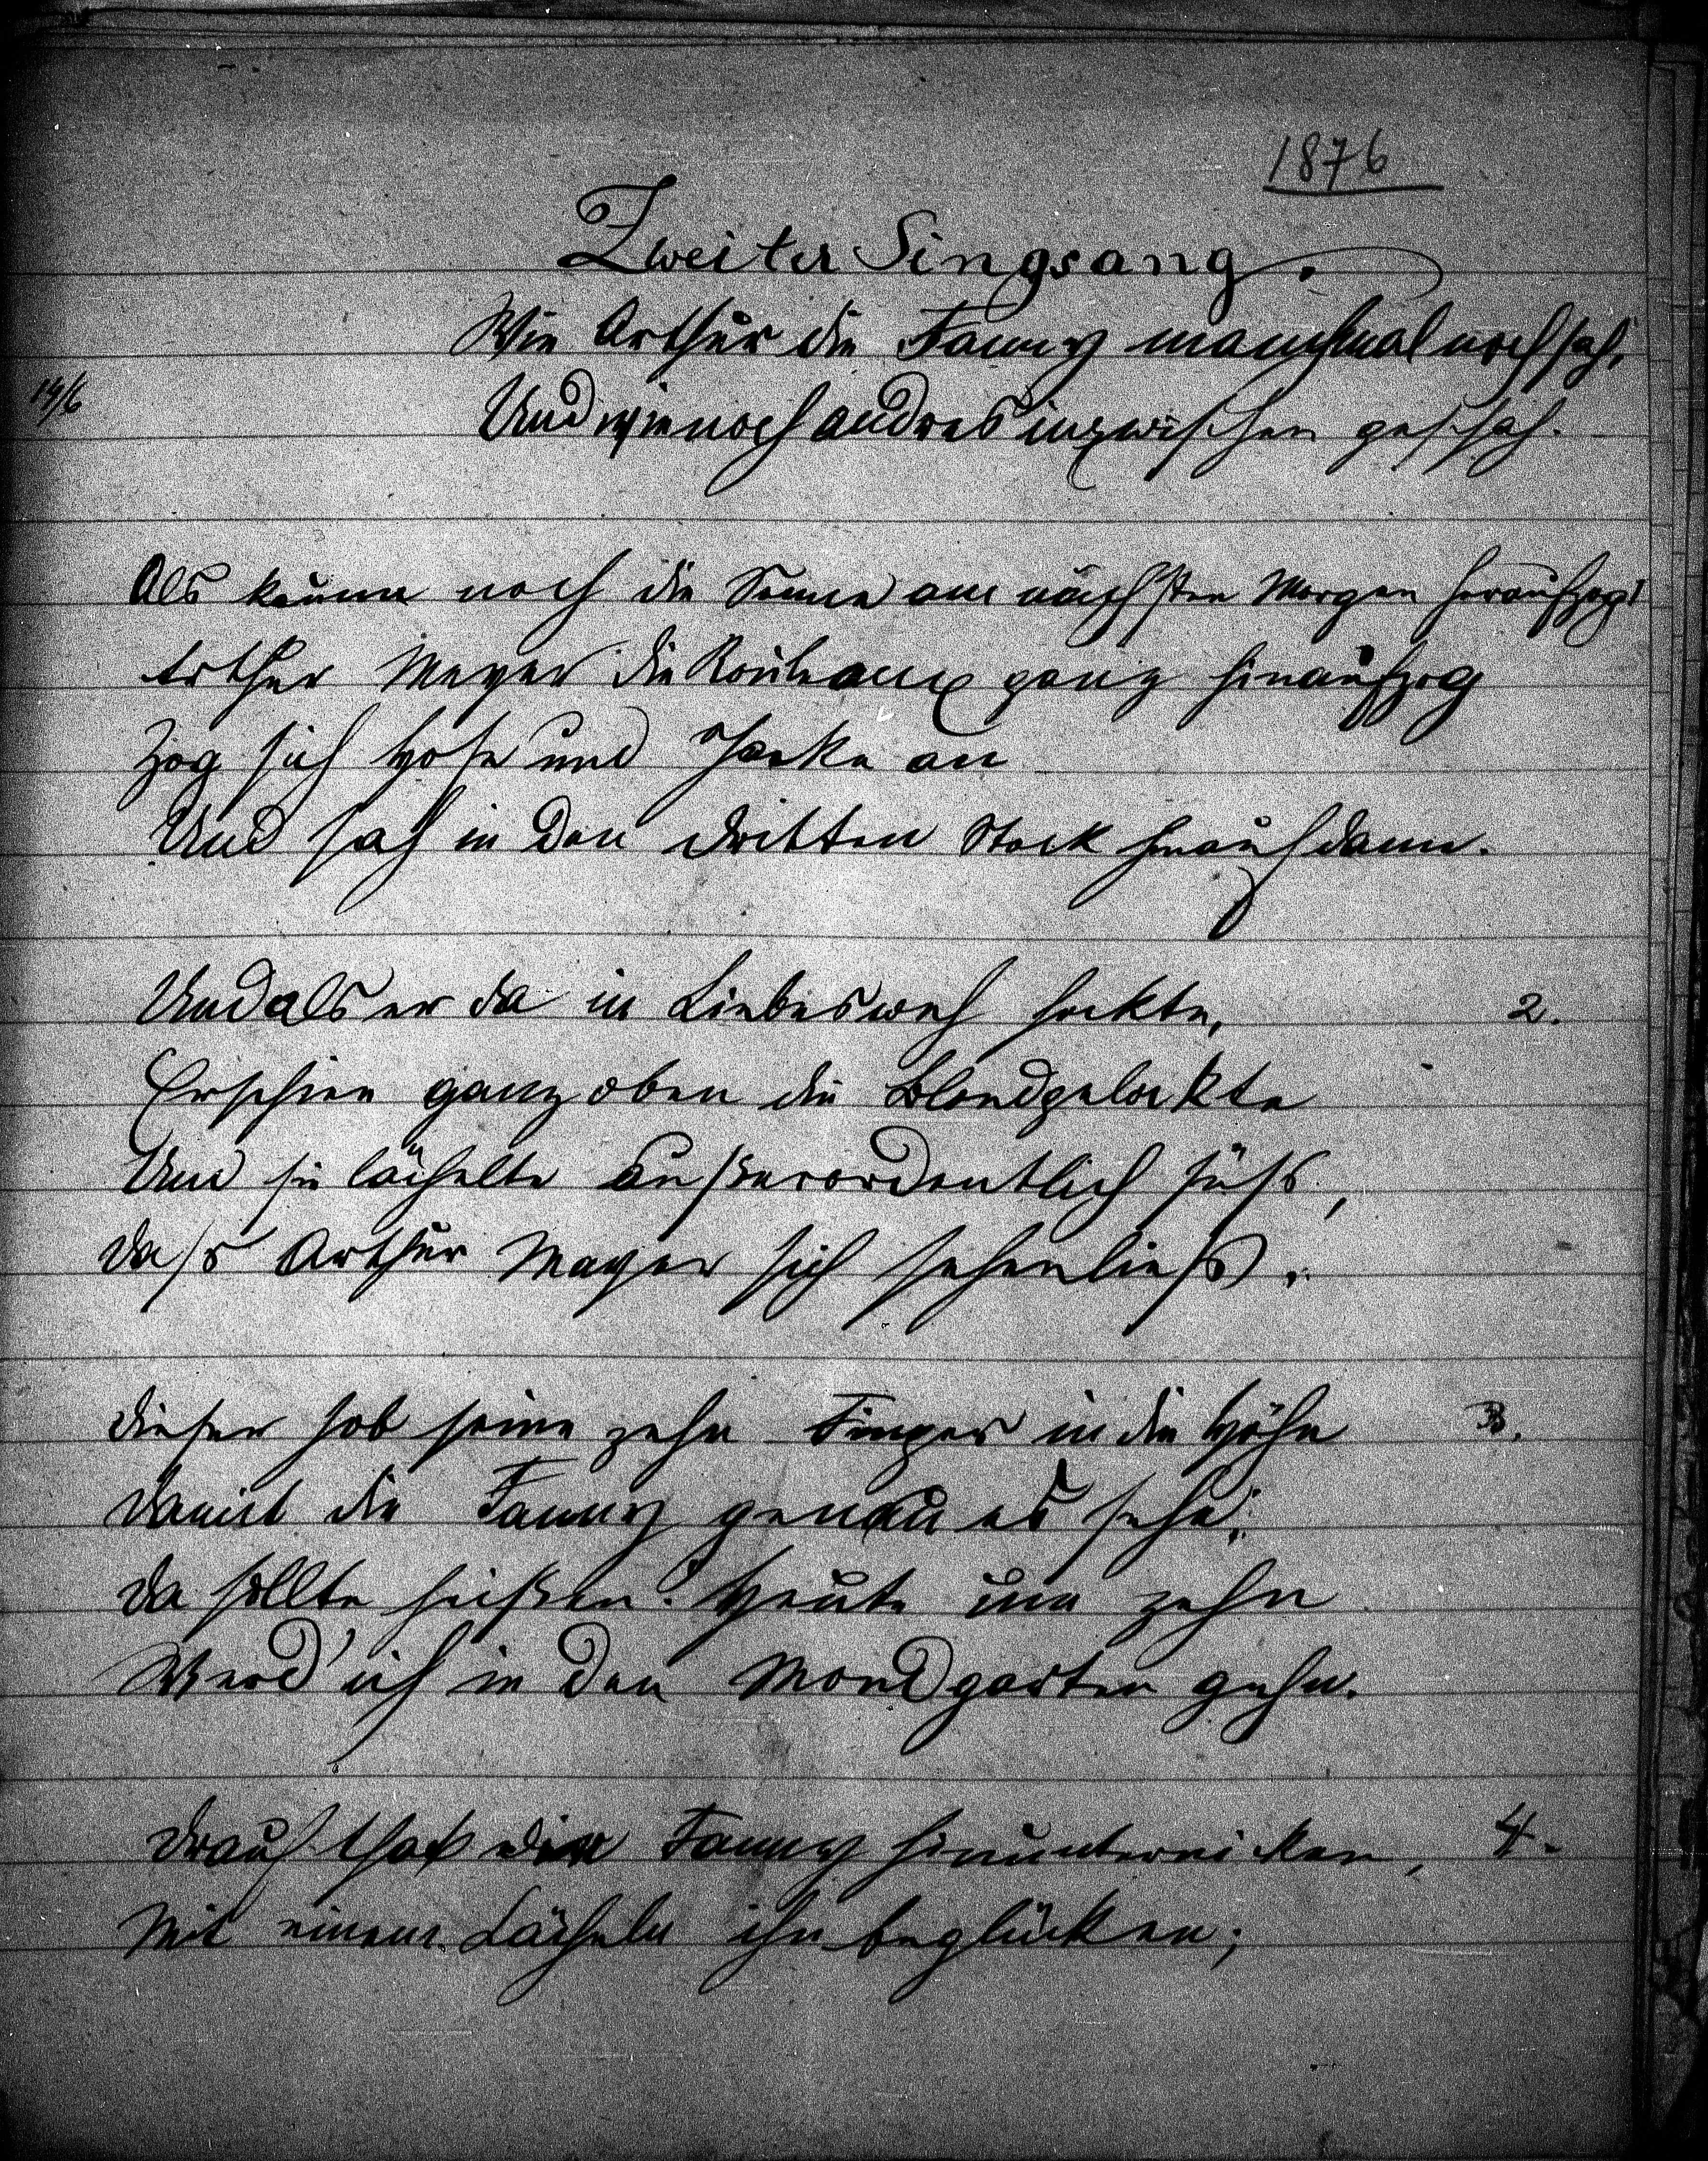 1876
Zweiter Singsang.
Wie Arthur die Fanny manchmal noch sah,
14/6
Und wie noch andres inzwischen geschah.
Als kaum noch die Sonne am nächsten Morgen heraufzog
Arthur Meyer die Rouleaux ganz hinaufzog
Zog sich Hose und Jacke an
Und sah in den dritten Stock hinauf dann.
Und als er da in Liebesweh hockte, 2.
Erschien ganz oben die Blondgelockte
Und sie lächelte außerordentlich süß,
Daß Arthur Mayer sich sehen ließ.
Dieser hob seine zehn Finger in die Höhe 3.
Damit die Fanny genau es sehe;
Da sollte heißen: Heute um zehn
Werd' ich in den Mondgarten gehn.
Drauf that die Fanny hinunternicken, 4.
Mit einem Lächeln ihn beglücken;